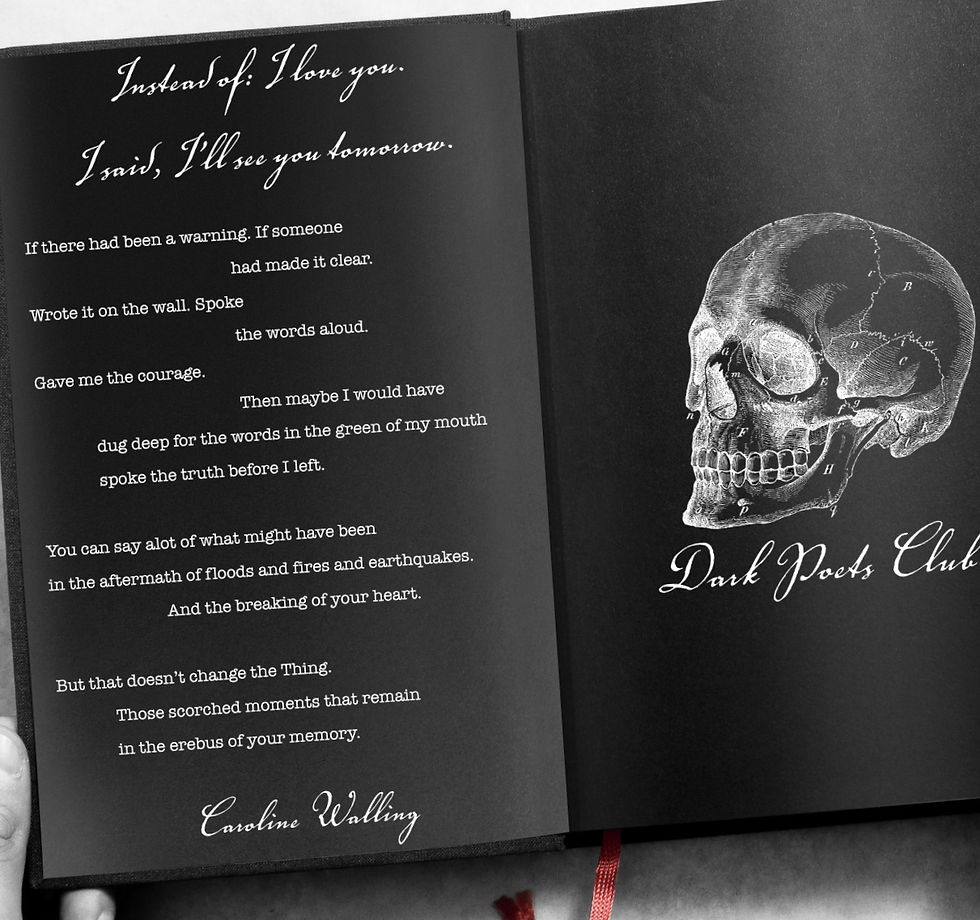 Instead of: I love you.
I said, I'll see you tomorrow.
If there had been a warning. If someone
had made it clear.
Wrote it on the wall. Spoke
the words aloud.
Gave me the courage.
Then maybe I would have
dug deep for the words in the green of my mouth
spoke the truth before I left.
You can say alot of what might have been
in the aftermath of floods and fires and earthquakes.
And the breaking of your heart.
But that doesn't change the Thing.
Those scorched moments that remain
in the erebus of your memory.
Caroline Walling
A
B
D
C
E
F
H
K
n
m
d
g
p
q
w
Dark Poets Club